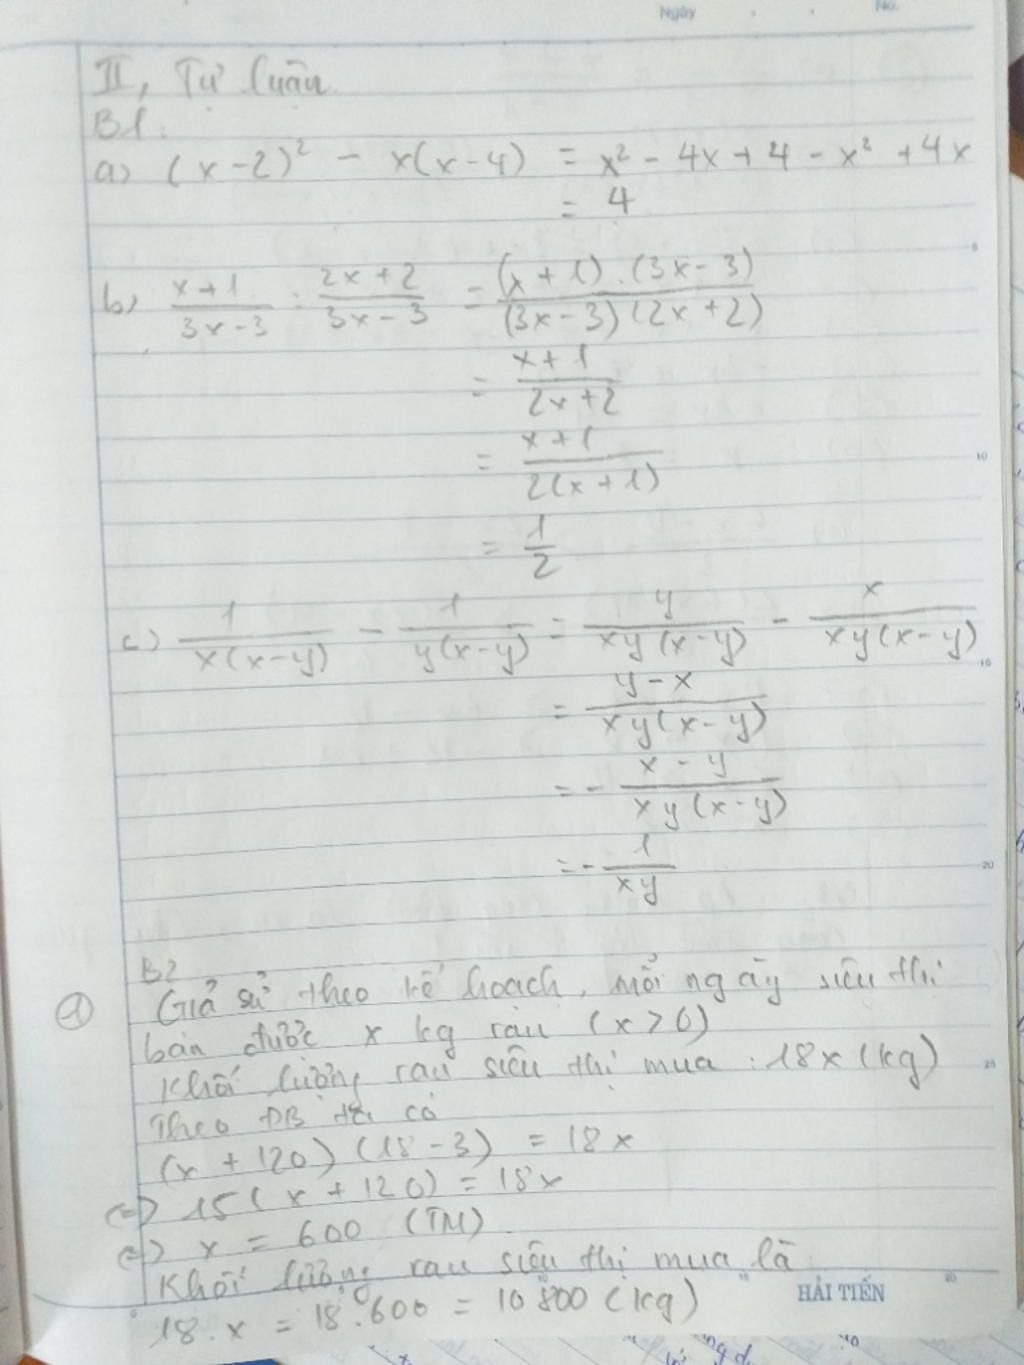 Ngày No.
II, Tự luận
B1:
a) (x-2)² - x(x-4) = x² - 4x + 4 - x² + 4x
= 4
b) \frac{x+1}{3x-3} : \frac{2x+2}{3x-3} = \frac{(x+1).(3x-3)}{(3x-3)(2x+2)}
= \frac{x+1}{2x+2}
= \frac{x+1}{2(x+1)}
= \frac{1}{2}
c) \frac{1}{x(x-y)} - \frac{1}{y(x-y)} = \frac{y}{xy(x-y)} - \frac{x}{xy(x-y)}
= \frac{y-x}{xy(x-y)}
= - \frac{x-y}{xy(x-y)}
= - \frac{1}{xy}
B2
① Giả sử theo kế hoạch, mỗi ngày siêu thị
bán được x kg rau (x > 0)
Khối lượng rau siêu thị mua : 18x (kg)
Theo ĐB ta có
(x + 120) (18 - 3) = 18x
(=) 15(x + 120) = 18x
(=) x = 600 (TM)
Khối lượng rau siêu thị mua là
18.x = 18.600 = 10800 (kg)
HẢI TIẾN